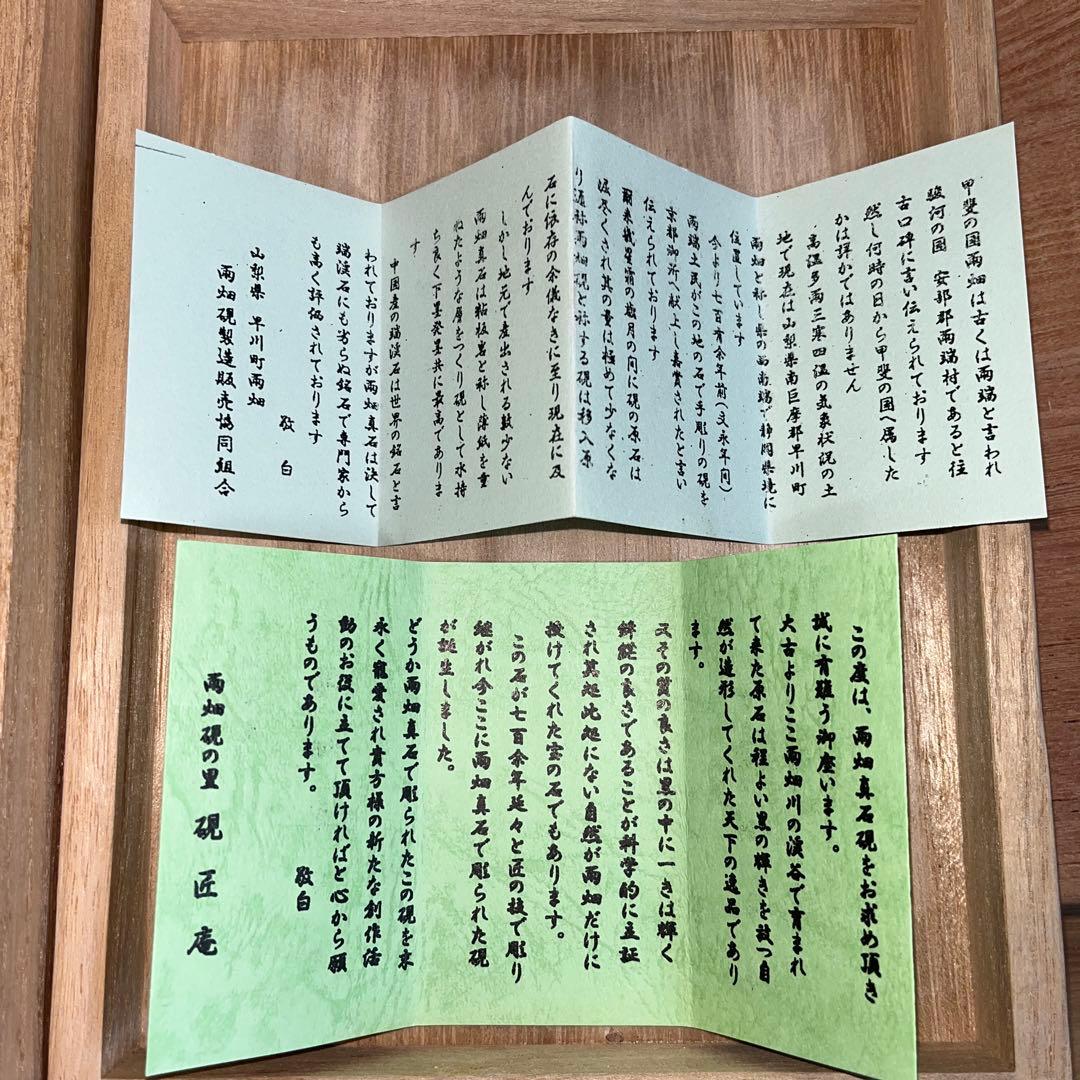 甲斐の国雨畑は古くは雨端と言われ
駿河の国　安部郡雨端村であると往
古口碑に言い伝えられております
然し何時の日から甲斐の国へ属した
かは詳かではありません
高温多雨三寒四温の気象状況の土
地で現在は山梨県南巨摩郡早川町
雨畑と称し県の西南端で静岡県境に
位置しています
今より七百有余年前(文永年間)
雨端土民がこの地の石で手彫りの硯を
京都御所へ献上し嘉賞されたと言い
伝えられております
爾来幾星霜の歳月の間に硯の原石は
掘尽くされ其の量は極めて少なくな
り通称雨畑硯と称する硯は移入原
石に依存の余儀なきに至り現在に及
んでおります
しかし地元で産出される数少ない
雨畑真石は粘板岩と称し薄紙を重
ねたような層をつくり硯として水持
ち良く下墨発墨共に最高でありま
す
中国産の端渓石は世界の銘石と言
われておりますが雨畑真石は決して
端渓石にも劣らぬ銘石で専門家から
も高く評価されております
敬　白
山梨県　早川町雨畑
雨畑硯製造販売協同組合
この度は、雨畑真石硯をお求め頂き
誠に有難う御座います。
大古よりここ雨畑川の渓谷で育まれ
て来た原石は程よい黒の輝きを放つ自
然が造形してくれた天下の逸品であり
ます。
又その質の良さは黒の中に一きは輝く
鋒鋩の良さであることが科学的に立証
され其処此処にない自然が雨畑だけに
授けてくれた宝の石でもあります。
この石が七百余年延々と匠の技で彫り
継がれ今ここに雨畑真石で彫られた硯
が誕生しました。
どうか雨畑真石で彫られたこの硯を末
永く寵愛され貴方様の新たな創作活
動のお役に立てて頂ければと心から願
うものであります。
敬白
雨畑硯の里　硯　匠　庵